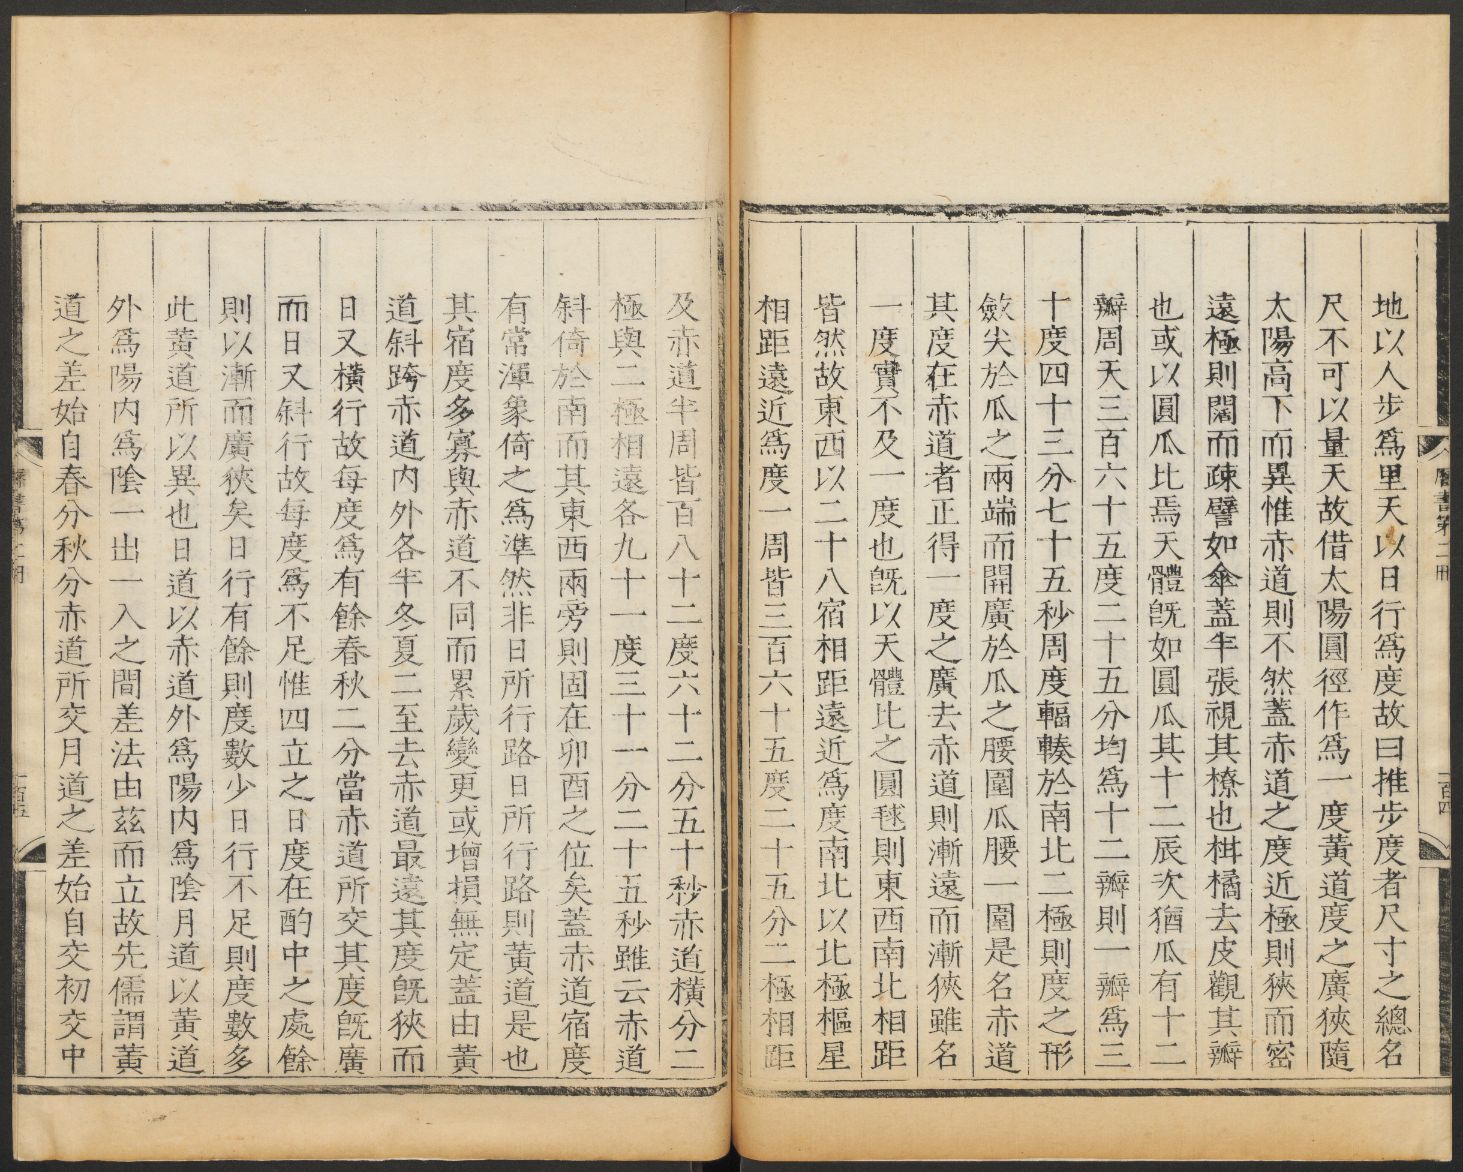 地以人步爲里天以日行爲度故曰推步度者尺寸之總名
尺不可以量天故借太陽圓徑作爲一度黃道度之廣狹隨
太陽高下而異惟赤道則不然蓋赤道之度近極則狹而密
遠極則闊而疎譬如傘蓋半張視其橑也柑橘去皮觀其瓣
也或以圓瓜比焉天體旣如圓瓜其十二辰次猶瓜有十二
瓣周天三百六十五度二十五分均爲十二瓣則一瓣爲三
十度四十三分七十五秒周度輻輳於南北二極則度之形
斂尖於瓜之兩端而開廣於瓜之腰圍瓜腰一圍是名赤道
其度在赤道者正得一度之廣去赤道則漸遠而漸狹雖名
一度實不及一度也旣以天體比之圓毬則東西南北相距
皆然故東西以二十八宿相距遠近爲度南北以北極樞星
相距遠近爲度一周皆三百六十五度二十五分二極相距
及赤道半周皆百八十二度六十二分五十秒赤道橫分二
極與二極相遠各九十一度三十一分二十五秒雖云赤道
斜倚於南而其東西兩旁則固在卯酉之位矣蓋赤道宿度
有常渾象倚之爲準然非日所行路日所行路則黃道是也
其宿度多寡與赤道不同而累歲變更或增損無定蓋由黃
道斜跨赤道內外各半冬夏二至去赤道最遠其度旣狹而
日又橫行故每度爲有餘春秋二分當赤道所交其度旣廣
而日又斜行故每度爲不足惟四立之日度在酌中之處餘
則以漸而廣狹矣日行有餘則度數少日行不足則度數多
此黃道所以異也日道以赤道外爲陽內爲陰月道以黃道
外爲陽內爲陰一出一入之間差法由茲而立故先儒謂黃
道之差始自春分秋分赤道所交月道之差始自交初交中